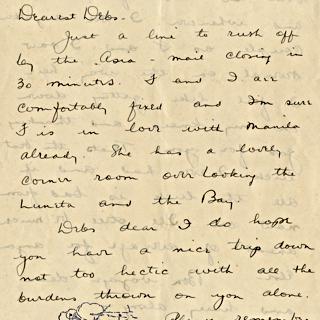 Dearest Debs -
Just a line to rush off
by the Asia - mail closing in
30 minutes. I and I are
comfortably fixed and I'm sure
I is in love with Manila
already. She has a lovely
corner room over looking the
Luneta and the Bay.
Debs dear I do hope
you have a nice trip down
not too hectic with all the
burdens thrown on you alone.
Please remember